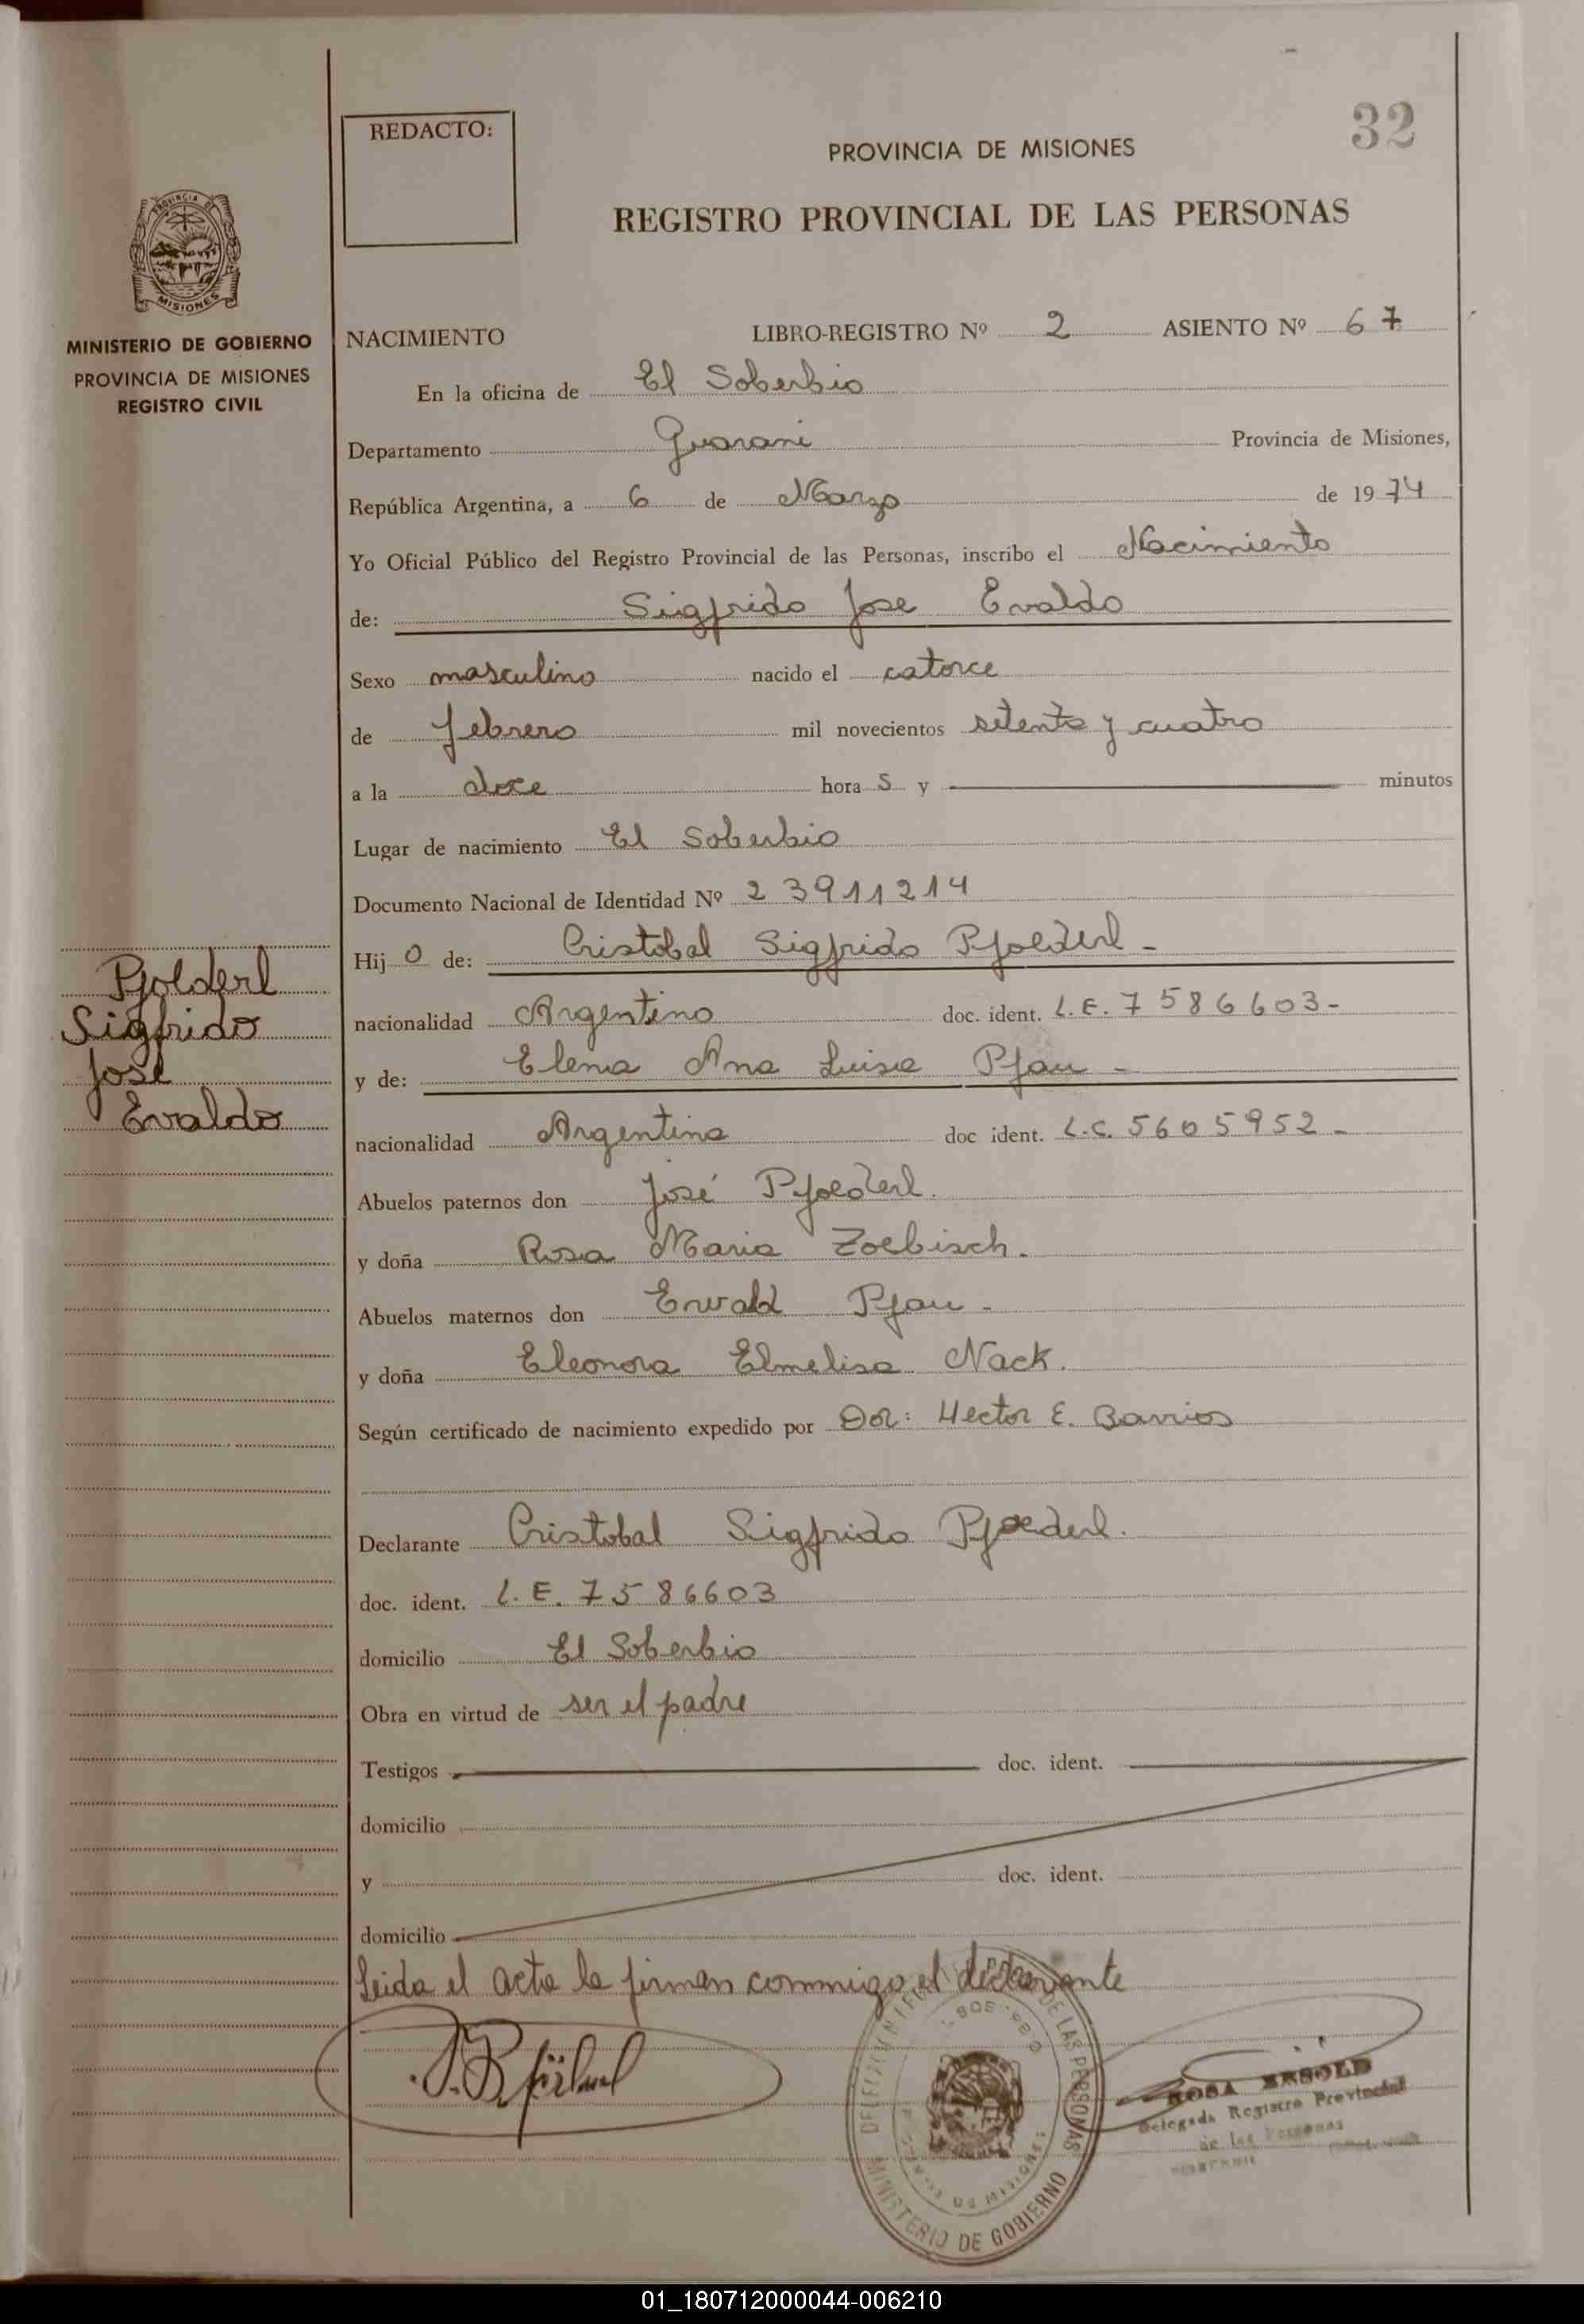 32
REDACTO:
PROVINCIA DE MISIONES
REGISTRO PROVINCIAL DE LAS PERSONAS
PROVINCIA DE
MISIONES
MINISTERIO DE GOBIERNO
PROVINCIA DE MISIONES
REGISTRO CIVIL
NACIMIENTO LIBRO-REGISTRO Nº 2 ASIENTO Nº 67
En la oficina de El Soberbio
Departamento Guarani Provincia de Misiones,
República Argentina, a 6 de Marzo de 1974
Yo Oficial Público del Registro Provincial de las Personas, inscribo el Nacimiento
de: Sigfrido Jose Evaldo
Sexo masculino nacido el catorce
de febrero mil novecientos setenta y cuatro
a la doce hora s y minutos
Lugar de nacimiento El Soberbio
Documento Nacional de Identidad Nº 23911214
Hij o de: Cristobal Sigfrido Pfoederl -
nacionalidad Argentino doc. ident. L.E. 7586603-
y de: Elena Ana Luisa Pfau -
nacionalidad Argentina doc ident. L.C. 5605952 -
Pfolderl
Sigfrido
José
Evaldo
Abuelos paternos don José Pfoederl.
y doña Rosa Maria Zoebisch.
Abuelos maternos don Erwald Pfau -
y doña Eleonora Elmelisa Nack.
Según certificado de nacimiento expedido por Dor: Hector E. Barrios
Declarante Cristobal Sigfrido Pfoederl.
doc. ident. L.E. 7586603
domicilio El Soberbio
Obra en virtud de ser el padre
Testigos doc. ident.
domicilio
y doc. ident.
domicilio
Leida el acta la firman conmigo el declarante
DE LAS PERSONAS
MINISTERIO DE GOBIERNO
ROSA
Delegada Registro Provincial
de las Personas
01_180712000044-006210